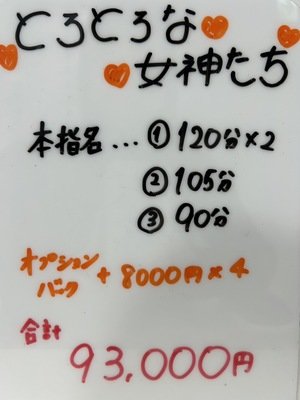 とろとろな
女神たち
本指名…①120分×2
②105分
③90分
オプション
バック + 8000円×4
合計
93,000円